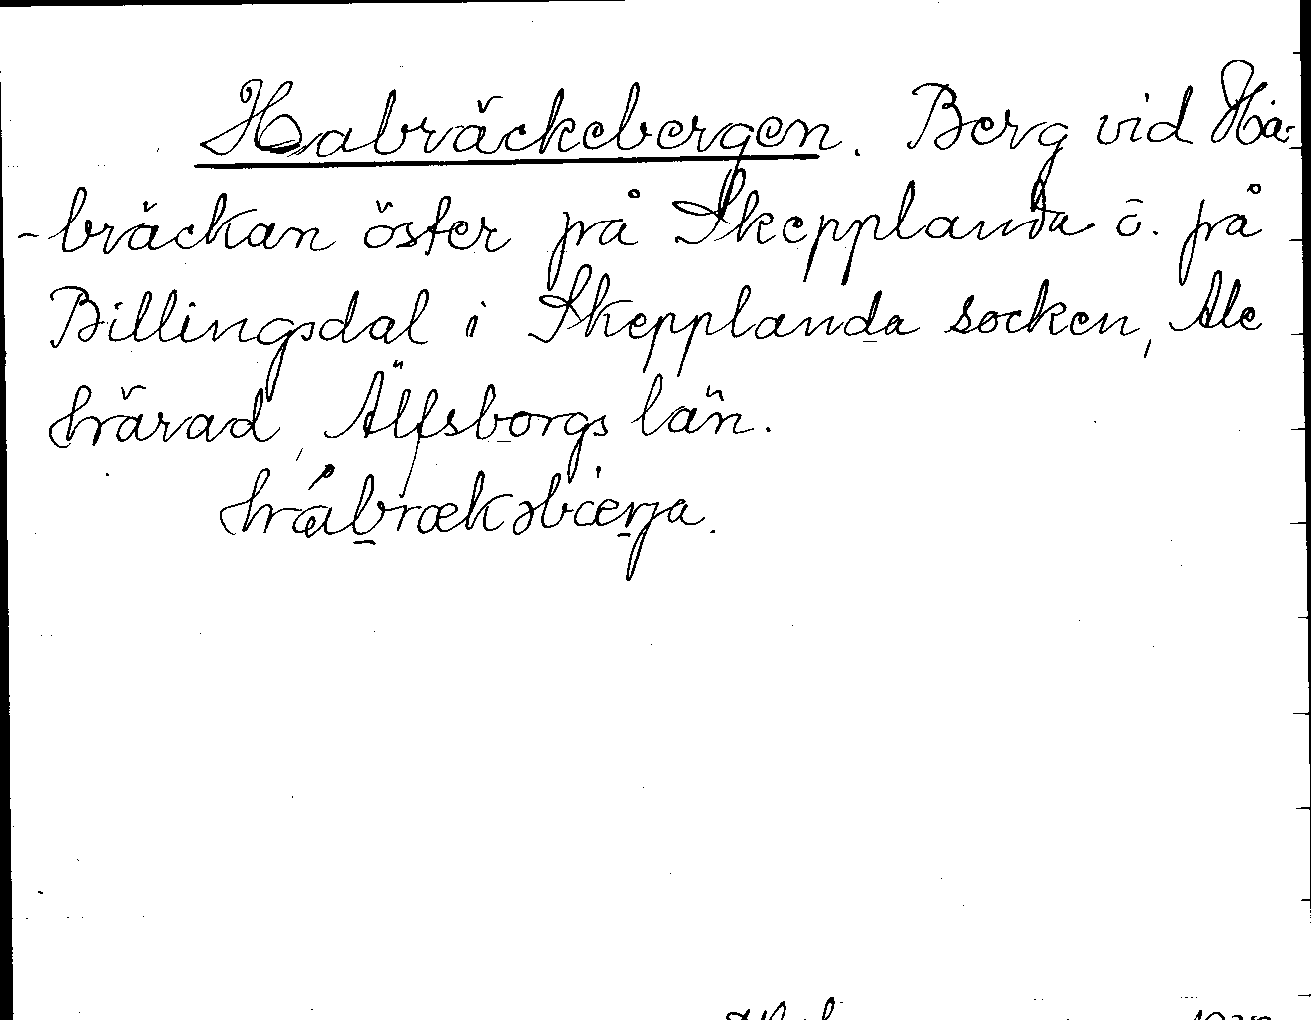 Habräckebergen. Berg vid Ha-
-bräckan öster på Skepplanda ö. på
Billingsdal i Skepplanda socken, Ale
härad, Älfsborgs län.